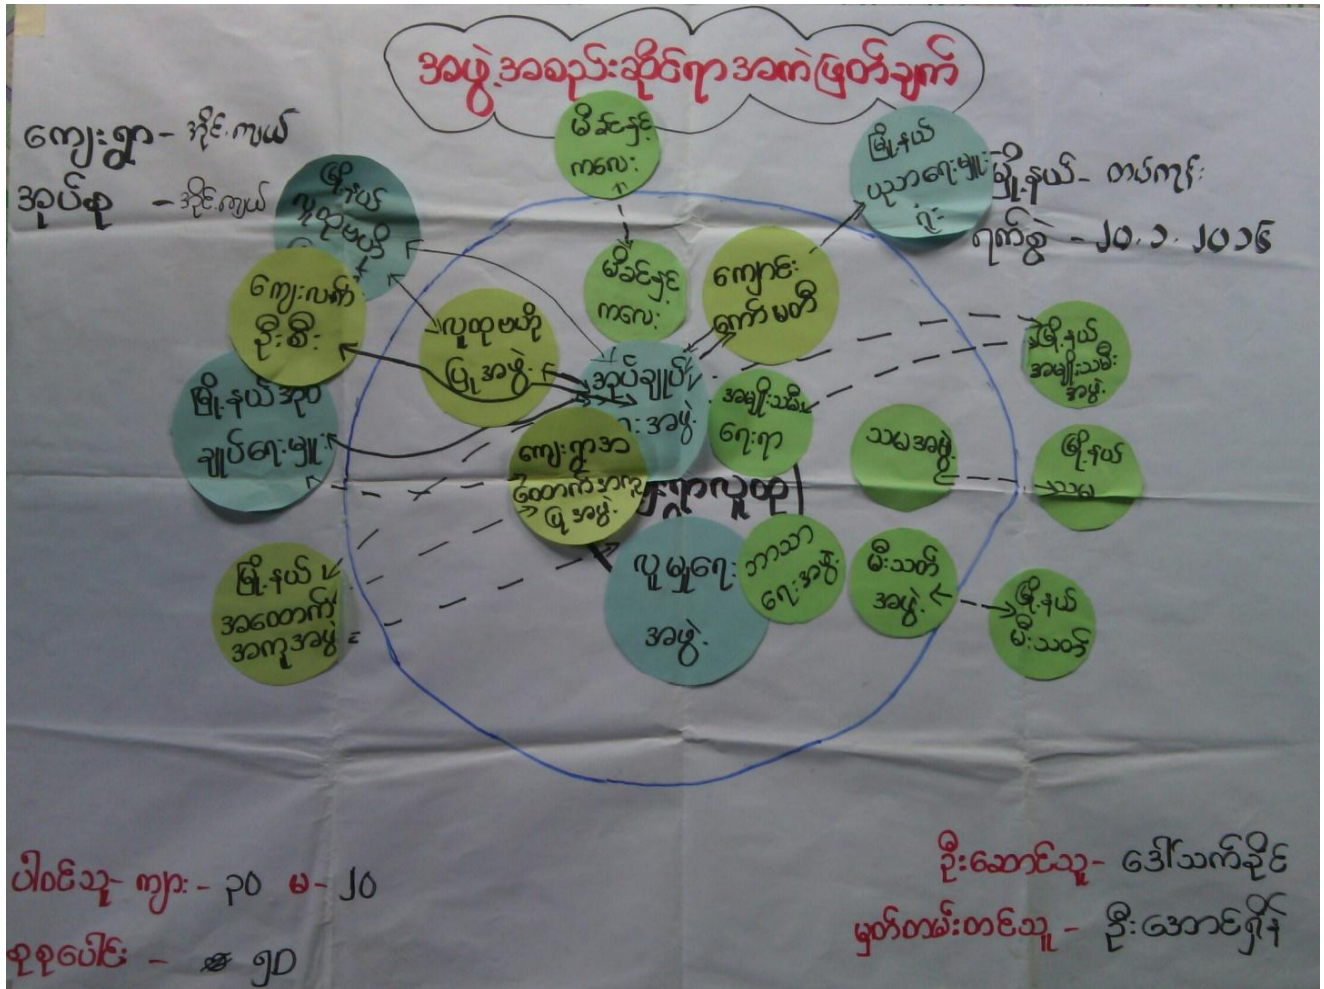 အဖွဲ့အစည်းဆိုင်ရာအကဲဖြတ်ချက်
ကျေးရွာ - အိုင်.ကျယ်
အုပ်စု - အိုင်.ကျယ်
မြို့နယ် - တပ်ကုန်း
ရက်စွဲ - ၂၀.၁.၂၀၁၆
မိခင်နှင့်
ကလေး
မြို့နယ်
ပညာရေးမှူး
ရုံး
မြို့နယ်
လူထုဗဟို
မိခင်နှင့်
ကလေး
ကျောင်း
ကော်မတီ
ကျေးလက်
ဦးစီး
လူထုဗဟို
ပြုအဖွဲ့
မြို့နယ်
အမျိုးသမီး
အဖွဲ့
အုပ်ချုပ်
ရေးအဖွဲ့
အမျိုးသမီး
ရေးရာ
မြို့နယ်အုပ်
ချုပ်ရေးမှူး
သမအဖွဲ့
မြို့နယ်
သမ
ကျေးရွာအ
ထောက်အကူ
ပြုအဖွဲ့
ရွာလူထု
လူမှုရေး
အဖွဲ့
ဘာသာ
ရေးအဖွဲ့
မီးသတ်
အဖွဲ့
မြို့နယ်
မီးသတ်
မြို့နယ်
အထောက်
အကူအဖွဲ့
ပါဝင်သူ - ကျား - ၃၀ မ - ၂၀
စုစုပေါင်း - ၅၀
ဦးဆောင်သူ - ဒေါ်သက်ခိုင်
မှတ်တမ်းတင်သူ - ဦးအောင်ရှိန်